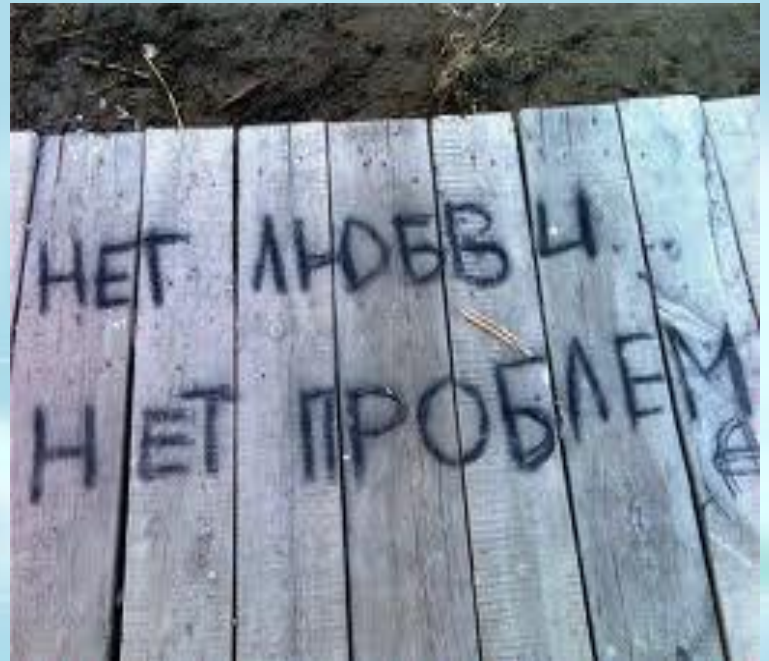 НЕТ ЛЮБВИ...
НЕТ ПРОБЛЕМ